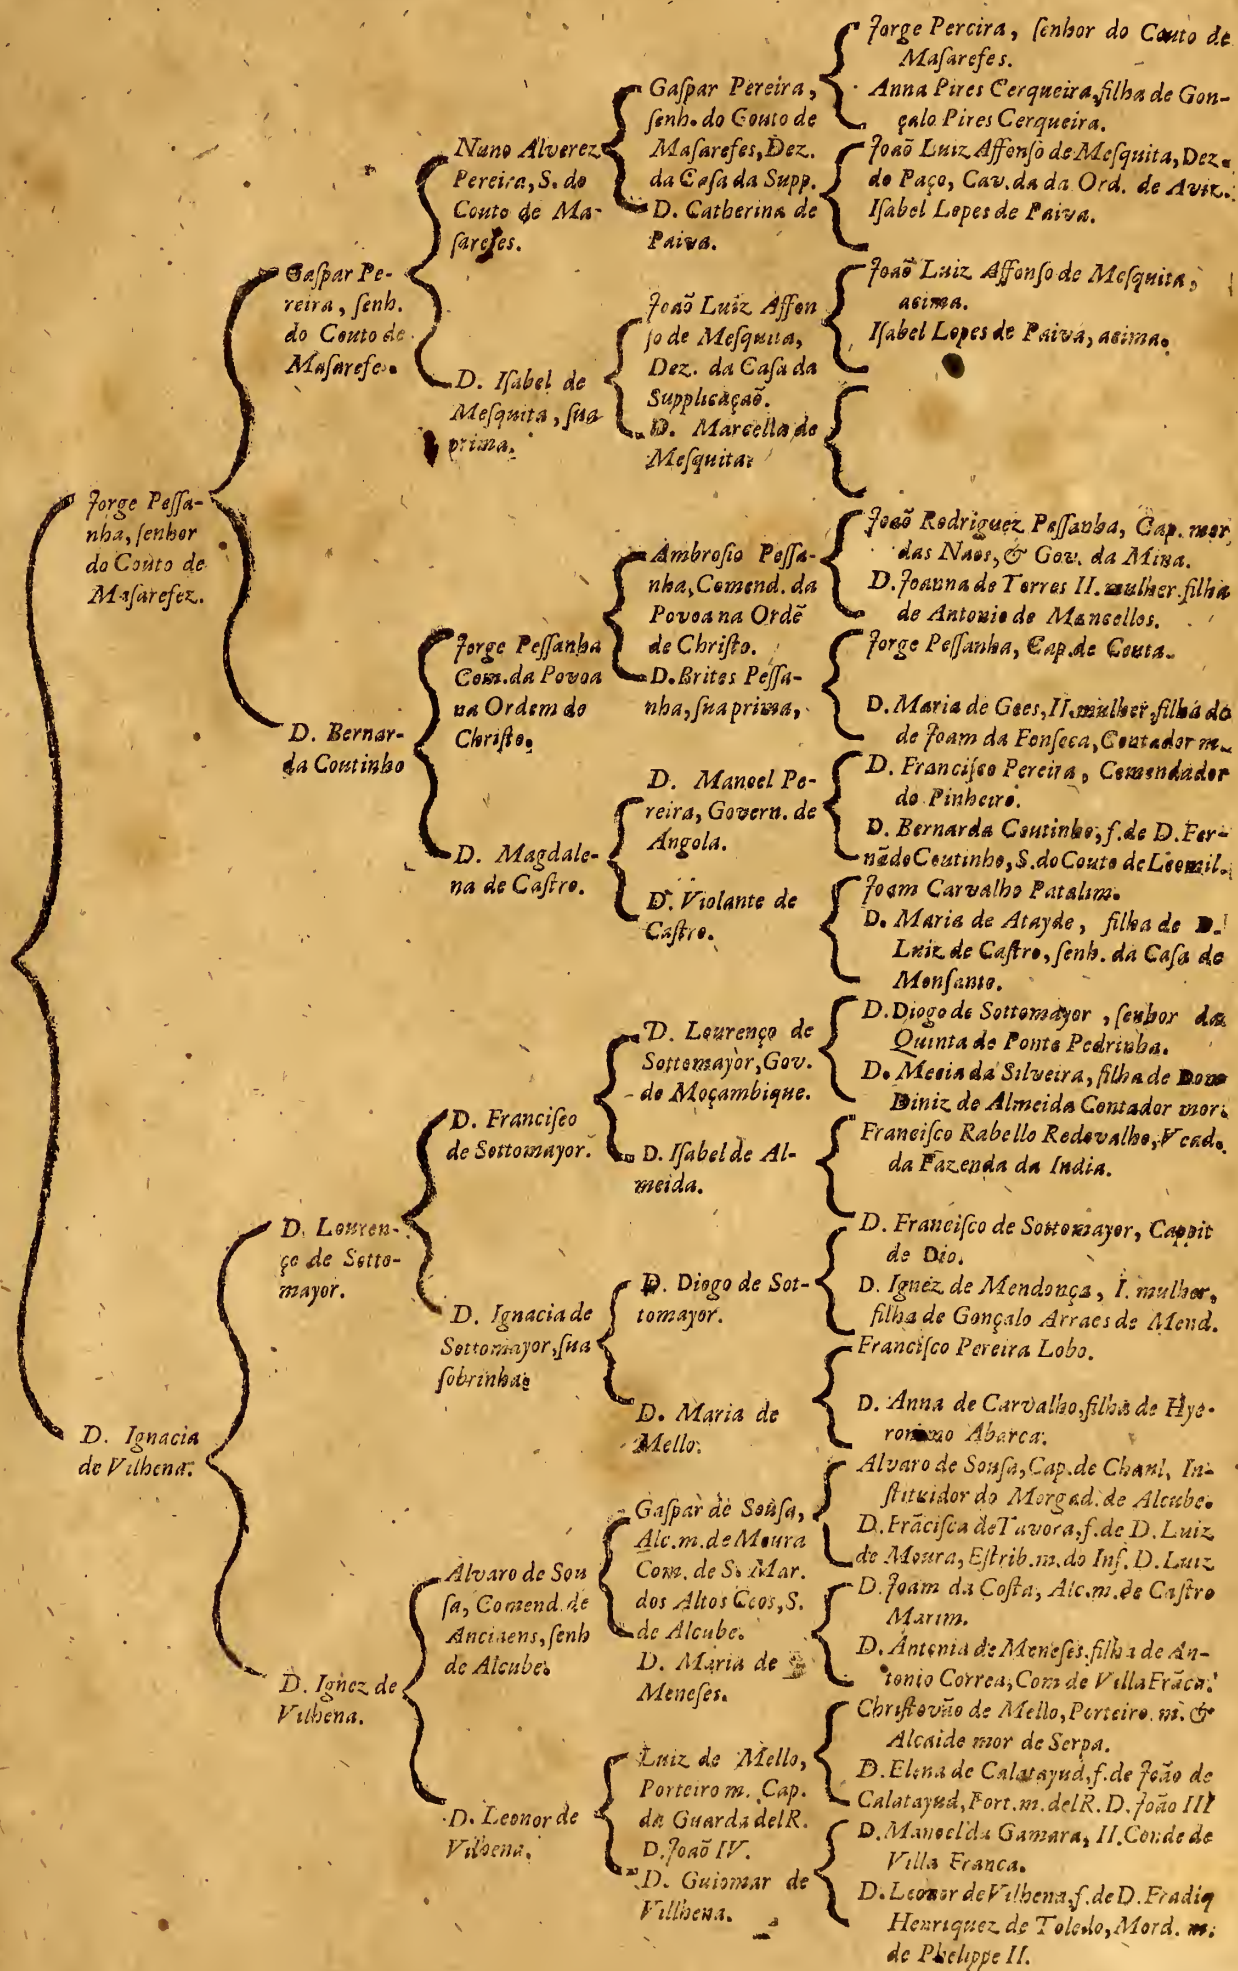 Jorge Peſſa-
nha, ſenhor
do Couto de
Maſarefez.
D. Ignacia
de Vilhena.
Gaſpar Pe-
reira, ſenh.
do Couto de
Maſarefe
D. Bernar-
da Coutinho
D. Louren-
ço de Sotto-
mayor.
D. Ignez de
Vilhena.
Nuno Alverez
Pereira, S. do
Couto de Ma-
ſarefes.
D. Iſabel de
Meſquita, ſua
prima.
Jorge Peſſanha
Com. da Povoa
na Ordem do
Chriſto.
D. Magdale-
na de Caſtro.
D. Franciſco
de Sottomayor.
D. Ignacia de
Sottomayor, ſua
ſobrinha.
Alvaro de Sou
ſa, Comend. de
Anciaens, ſenh
de Alcube.
D. Leonor de
Vilhena.
Gaſpar Pereira,
ſenh. do Couto de
Maſarefes, Dez.
da Caſa da Supp.
D. Catherina de
Paiva.
Joaõ Luiz Affon
ſo de Meſquita,
Dez. da Caſa da
Supplicaçaõ.
D. Marcella de
Meſquita.
Ambroſio Peſſa-
nha, Comend. da
Povoa na Ordẽ
de Chriſto.
D. Brites Peſſa-
nha, ſua prima,
D. Manoel Pe-
reira, Govern. de
Angola.
D. Violante de
Caſtro.
D. Lourenço de
Sottomayor, Gov.
de Moçambique.
D. Iſabel de Al-
meida.
D. Diogo de Sot-
tomayor.
D. Maria de
Mello.
Gaſpar de Souſa,
Alc. m. de Moura
Com. de S. Mar.
dos Altos Ceos, S.
de Alcube.
D. Maria de
Meneſes.
Luiz de Mello,
Porteiro m. Cap.
da Guarda delR.
D. Joaõ IV.
D. Guiomar de
Villhena.
Jorge Pereira, ſenhor do Couto de
Maſarefes.
Anna Pires Cerqueira, filha de Gon-
çalo Pires Cerqueira.
Joaõ Luiz Affonſo de Meſquita, Dez.
do Paço, Cav. da da Ord. de Aviz.
Iſabel Lopes de Paiva.
Joaõ Luiz Affonſo de Meſquita,
acima.
Iſabel Lopes de Paiva, acima.
Joaõ Rodriguez Peſſanha, Cap. mor
das Naos, & Gov. da Mina.
D. Joanna de Torres II. mulher. filha
de Antonio de Mancellos.
Jorge Peſſanha, Cap. de Ceuta.
D. Maria de Goes, II. mulher, filha do
de Joam da Fonſeca, Contador m.
D. Franciſco Pereira, Comendador
do Pinheiro.
D. Bernarda Coutinho, f. de D. Fer-
nãdo Coutinho, S. do Couto de Leomil.
Joam Carvalho Patalim.
D. Maria de Atayde, filha de D.
Luiz de Caſtro, ſenh. da Caſa de
Monſanto.
D. Diogo de Sottomayor, ſenhor da
Quinta de Ponte Pedrinha.
D. Mecia da Silveira, filha de Dom
Diniz de Almeida Contador mor.
Franciſco Rabello Rodovalho, Vead.
da Fazenda da India.
D. Franciſco de Sottomayor, Cappit
de Dio.
D. Ignez de Mendonça, I. mulher,
filha de Gonçalo Arraes de Mend.
Franciſco Pereira Lobo.
D. Anna de Carvalho, filha de Hye-
ronimo Abarca.
Alvaro de Souſa, Cap. de Chaul, In-
ſtituidor do Morgad. de Alcube.
D. Frãciſca de Tavora, f. de D. Luiz
de Moura, Eſtrib. m. do Inf. D. Luiz
D. Joam da Coſta, Alc. m. de Caſtro
Marim.
D. Antonia de Meneſes. filha de An-
tonio Correa, Com de Villa Frãca.
Chriſtovão de Mello, Porteiro. m. &
Alcaide mor de Serpa.
D. Elena de Calatayud, f. de João de
Calatayud, Port. m. delR. D. João III
D. Manoel da Camara, II. Conde de
Villa Franca.
D. Leonor de Vilhena, f. de D. Fradiq
Henriquez de Toledo, Mord. m.
de Phelippe II.